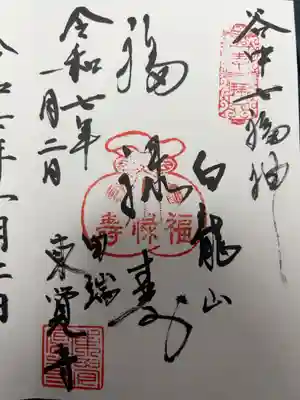 谷中七福神
白龍山
福禄寿
福禄壽
田端
東覺寺
令和七年
一月二日
令和七年一月二日